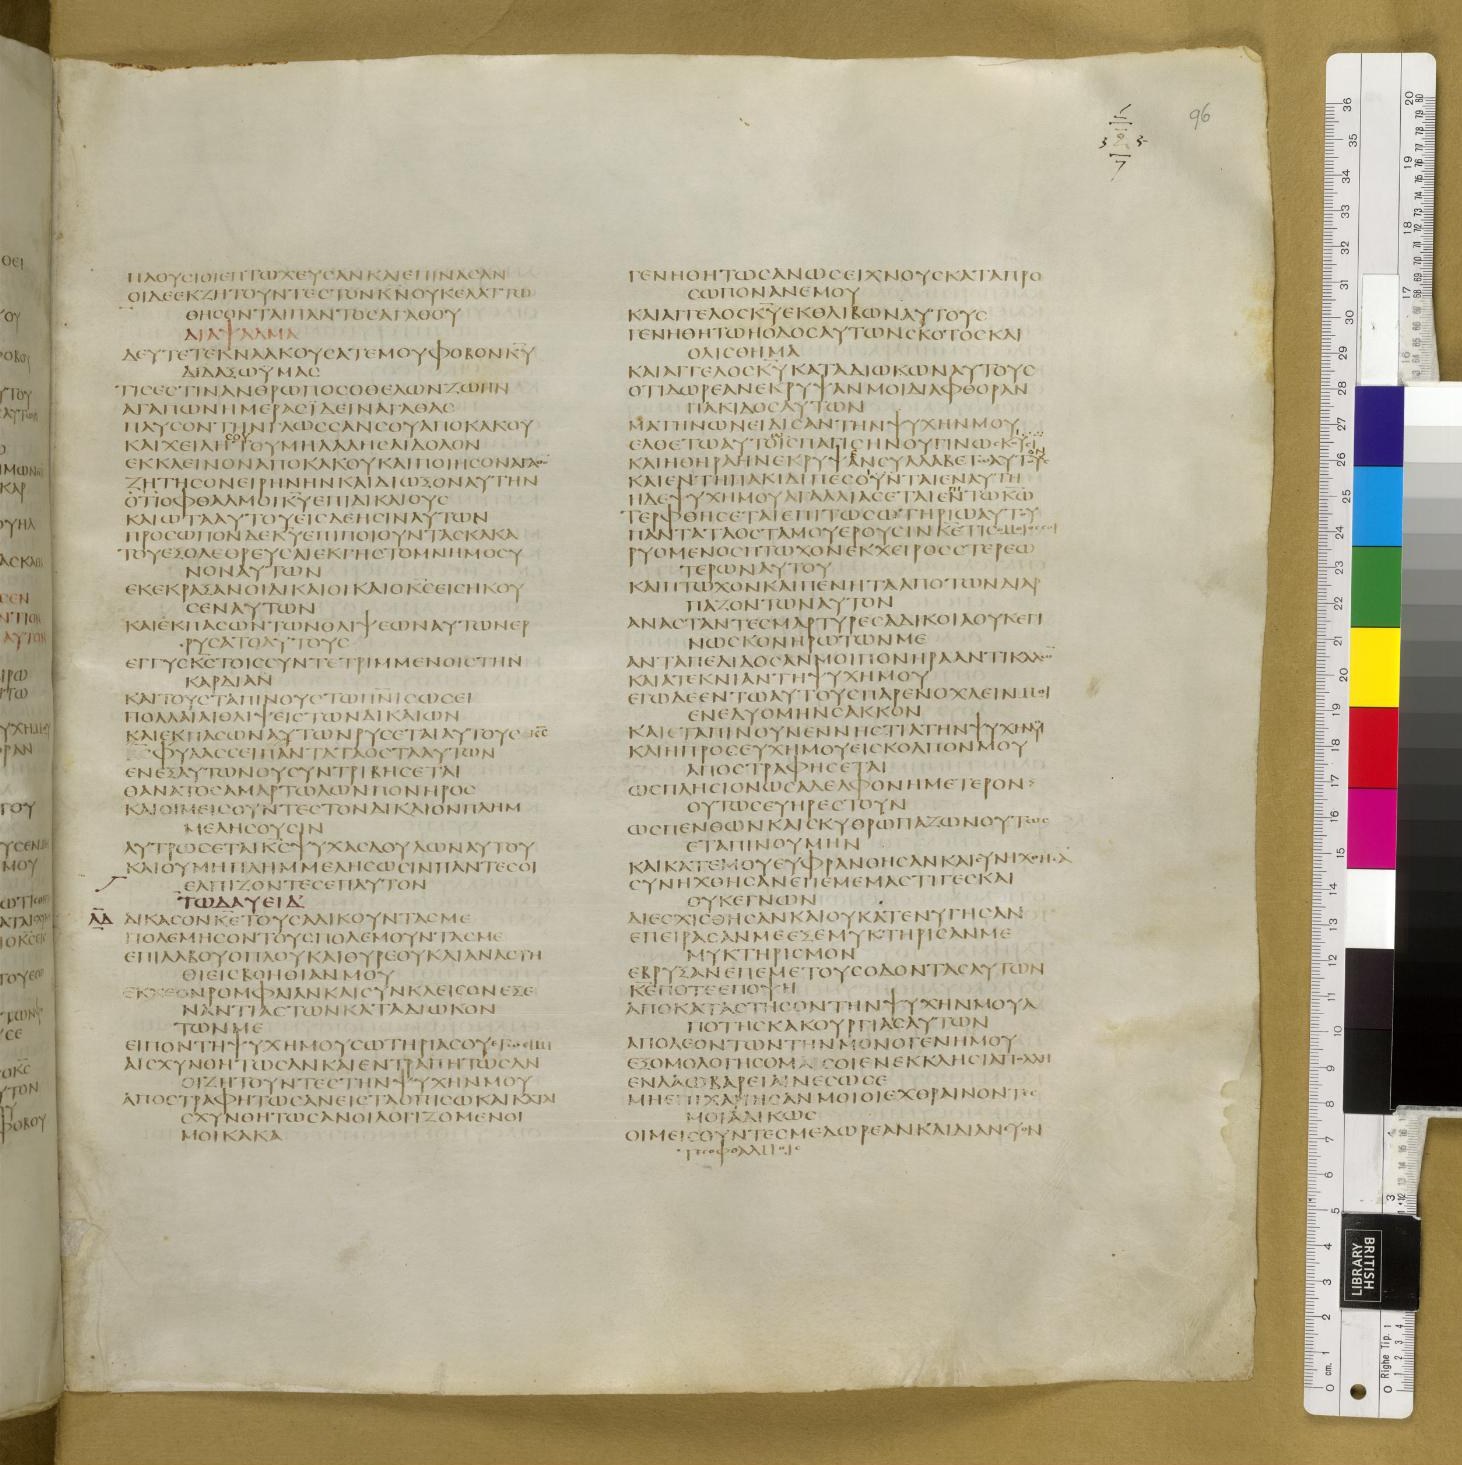 96
ΠΛΟΥΣΙΟΙΕΠΤΩΧΕΥΣΑΝΚΑΙΕΠΙΝΑΣΑΝ
ΟΙΔΕΕΚΖΗΤΟΥΝΤΕΣΤΟΝΚΝΟΥΚΕΛΑΤΤΩ
ΘΗΣΟΝΤΑΙΠΑΝΤΟΣΑΓΑΘΟΥ
ΔΙΑΨΑΛΜΑ
ΔΕΥΤΕΤΕΚΝΑΑΚΟΥΣΑΤΕΜΟΥΦΟΒΟΝΚΥ
ΔΙΔΑΞΩΥΜΑΣ
ΤΙΣΕΣΤΙΝΑΝΘΡΩΠΟΣΟΘΕΛΩΝΖΩΗΝ
ΑΓΑΠΩΝΗΜΕΡΑΣΪΔΕΙΝΑΓΑΘΑΣ
ΠΑΥΣΟΝΤΗΝΓΛΩΣΣΑΝΣΟΥΑΠΟΚΑΚΟΥ
ΚΑΙΧΕΙΛΗΣΟΥΤΟΥΜΗΛΑΛΗΣΑΙΔΟΛΟΝ
ΕΚΚΛΕΙΝΟΝΑΠΟΚΑΚΟΥΚΑΙΠΟΙΗΣΟΝΑΓΑΘΟΝ
ΖΗΤΗΣΟΝΕΙΡΗΝΗΝΚΑΙΔΙΩΞΟΝΑΥΤΗΝ
ΟΤΙΟΦΘΑΛΜΟΙΚΥΕΠΙΔΙΚΑΙΟΥΣ
ΚΑΙΩΤΑΑΥΤΟΥΕΙΣΔΕΗΣΙΝΑΥΤΩΝ
ΠΡΟΣΩΠΟΝΔΕΚΥΕΠΙΠΟΙΟΥΝΤΑΣΚΑΚΑ
ΤΟΥΕΞΟΛΕΘΡΕΥΣΑΙΕΚΓΗΣΤΟΜΝΗΜΟΣΥ
ΝΟΝΑΥΤΩΝ
ΕΚΕΚΡΑΞΑΝΟΙΔΙΚΑΙΟΙΚΑΙΟΚΣΕΙΣΗΚΟΥ
ΣΕΝΑΥΤΩΝ
ΚΑΙΕΚΠΑΣΩΝΤΩΝΘΛΙΨΕΩΝΑΥΤΩΝΕΡ
ΡΥΣΑΤΟΑΥΤΟΥΣ
ΕΓΓΥΣΚΣΤΟΙΣΣΥΝΤΕΤΡΙΜΜΕΝΟΙΣΤΗΝ
ΚΑΡΔΙΑΝ
ΚΑΙΤΟΥΣΤΑΠΙΝΟΥΣΤΩΠΝΙΣΩΣΕΙ
ΠΟΛΛΑΙΑΙΘΛΙΨΕΙΣΤΩΝΔΙΚΑΙΩΝ
ΚΑΙΕΚΠΑΣΩΝΑΥΤΩΝΡΥΣΕΤΑΙΑΥΤΟΥΣΟΚΣ
ΦΥΛΑΣΣΕΙΠΑΝΤΑΤΑΟΣΤΑΑΥΤΩΝ
ΕΝΕΞΑΥΤΩΝΟΥΣΥΝΤΡΙΒΗΣΕΤΑΙ
ΘΑΝΑΤΟΣΑΜΑΡΤΩΛΩΝΠΟΝΗΡΟΣ
ΚΑΙΟΙΜΕΙΣΟΥΝΤΕΣΤΟΝΔΙΚΑΙΟΝΠΛΗΜ
ΜΕΛΗΣΟΥΣΙΝ
ΛΥΤΡΩΣΕΤΑΙΚΣΨΥΧΑΣΔΟΥΛΩΝΑΥΤΟΥ
ΚΑΙΟΥΜΗΠΛΗΜΜΕΛΗΣΩΣΙΝΠΑΝΤΕΣΟΙ
ΕΛΠΙΖΟΝΤΕΣΕΠΑΥΤΟΝ
ΤΩΔΑΥΕΙΔ
ΛΔ ΔΙΚΑΣΟΝΚΕΤΟΥΣΑΔΙΚΟΥΝΤΑΣΜΕ
ΠΟΛΕΜΗΣΟΝΤΟΥΣΠΟΛΕΜΟΥΝΤΑΣΜΕ
ΕΠΙΛΑΒΟΥΟΠΛΟΥΚΑΙΘΥΡΕΟΥΚΑΙΑΝΑΣΤΗ
ΘΙΕΙΣΒΟΗΘΙΑΝΜΟΥ
ΕΚΧΕΟΝΡΟΜΦΑΙΑΝΚΑΙΣΥΝΚΛΕΙΣΟΝΕΞΕ
ΝΑΝΤΙΑΣΤΩΝΚΑΤΑΔΙΩΚΟΝ
ΤΩΝΜΕ
ΕΙΠΟΝΤΗΨΥΧΗΜΟΥΣΩΤΗΡΙΑΣΟΥΕΓΩΕΙΜΙ
ΑΙΣΧΥΝΘΗΤΩΣΑΝΚΑΙΕΝΤΡΑΠΗΤΩΣΑΝ
ΟΙΖΗΤΟΥΝΤΕΣΤΗΝΨΥΧΗΝΜΟΥ
ΑΠΟΣΤΡΑΦΗΤΩΣΑΝΕΙΣΤΑΟΠΙΣΩΚΑΙΚΑΤΑΙ
ΣΧΥΝΘΗΤΩΣΑΝΟΙΛΟΓΙΖΟΜΕΝΟΙ
ΜΟΙΚΑΚΑ
ΓΕΝΗΘΗΤΩΣΑΝΩΣΕΙΧΝΟΥΣΚΑΤΑΠΡΟ
ΣΩΠΟΝΑΝΕΜΟΥ
ΚΑΙΑΓΓΕΛΟΣΚΥΕΚΘΛΙΒΩΝΑΥΤΟΥΣ
ΓΕΝΗΘΗΤΩΗΟΔΟΣΑΥΤΩΝΣΚΟΤΟΣΚΑΙ
ΟΛΙΣΘΗΜΑ
ΚΑΙΑΓΓΕΛΟΣΚΥΚΑΤΑΔΙΩΚΩΝΑΥΤΟΥΣ
ΟΤΙΔΩΡΕΑΝΕΚΡΥΨΑΝΜΟΙΔΙΑΦΘΟΡΑΝ
ΠΑΚΙΔΟΣΑΥΤΩΝ
ΜΑΤΗΝΩΝΕΙΔΙΣΑΝΤΗΝΨΥΧΗΝΜΟΥ
ΕΛΘΕΤΩΑΥΤΟΙΣΠΑΓΙΣΗΝΟΥΓΙΝΩΣΚΟΥΣΙ
ΚΑΙΗΘΗΡΑΗΝΕΚΡΥΨΑΝΣΥΛΛΑΒΕΤΩΑΥΤΟΥΣ
ΚΑΙΕΝΤΗΠΑΚΙΔΙΠΕΣΟΥΝΤΑΙΕΝΑΥΤΗ
ΗΔΕΨΥΧΗΜΟΥΑΓΑΛΛΙΑΣΕΤΑΙΕΝΤΩΚΩ
ΤΕΡΦΘΗΣΕΤΑΙΕΠΙΤΩΣΩΤΗΡΙΩΑΥΤΟΥ
ΠΑΝΤΑΤΑΟΣΤΑΜΟΥΕΡΟΥΣΙΝΚΕΤΙΣΟΜΟΙΟΣΣΟΙ
ΡΥΟΜΕΝΟΣΠΤΩΧΟΝΕΚΧΕΙΡΟΣΣΤΕΡΕΩ
ΤΕΡΩΝΑΥΤΟΥ
ΚΑΙΠΤΩΧΟΝΚΑΙΠΕΝΗΤΑΑΠΟΤΩΝΔΙΑΡ
ΠΑΖΟΝΤΩΝΑΥΤΟΝ
ΑΝΑΣΤΑΝΤΕΣΜΑΡΤΥΡΕΣΑΔΙΚΟΙΑΟΥΚΕΓΙ
ΝΩΣΚΟΝΗΡΩΤΩΝΜΕ
ΑΝΤΑΠΕΔΙΔΟΣΑΝΜΟΙΠΟΝΗΡΑΑΝΤΙΚΑΛΩΝ
ΚΑΙΑΤΕΚΝΙΑΝΤΗΨΥΧΗΜΟΥ
ΕΓΩΔΕΕΝΤΩΑΥΤΟΥΣΠΑΡΕΝΟΧΛΕΙΝΜΟΙ
ΕΝΕΔΥΟΜΗΝΣΑΚΚΟΝ
ΚΑΙΕΤΑΠΙΝΟΥΝΕΝΝΗΣΤΙΑΤΗΝΨΥΧΗΝΜΥ
ΚΑΙΗΠΡΟΣΕΥΧΗΜΟΥΕΙΣΚΟΛΠΟΝΜΟΥ
ΑΠΟΣΤΡΑΦΗΣΕΤΑΙ
ΩΣΠΛΗΣΙΟΝΩΣΑΔΕΛΦΟΝΗΜΕΤΕΡΟΝ
ΟΥΤΩΣΕΥΗΡΕΣΤΟΥΝ
ΩΣΠΕΝΘΩΝΚΑΙΣΚΥΘΡΩΠΑΖΩΝΟΥΤΩΣ
ΕΤΑΠΙΝΟΥΜΗΝ
ΚΑΙΚΑΤΕΜΟΥΕΥΦΡΑΝΘΗΣΑΝΚΑΙΣΥΝΗΧΘΗΣΑ
ΣΥΝΗΧΘΗΣΑΝΕΠΕΜΕΜΑΣΤΙΓΕΣΚΑΙ
ΟΥΚΕΓΝΩΝ
ΔΙΕΣΧΙΣΘΗΣΑΝΚΑΙΟΥΚΑΤΕΝΥΓΗΣΑΝ
ΕΠΕΙΡΑΣΑΝΜΕΕΞΕΜΥΚΤΗΡΙΣΑΝΜΕ
ΜΥΚΤΗΡΙΣΜΟΝ
ΕΒΡΥΞΑΝΕΠΕΜΕΤΟΥΣΟΔΟΝΤΑΣΑΥΤΩΝ
ΚΕΠΟΤΕΕΠΟΨΗ
ΑΠΟΚΑΤΑΣΤΗΣΟΝΤΗΝΨΥΧΗΝΜΟΥΑ
ΠΟΤΗΣΚΑΚΟΥΡΓΙΑΣΑΥΤΩΝ
ΑΠΟΛΕΟΝΤΩΝΤΗΝΜΟΝΟΓΕΝΗΜΟΥ
ΕΞΟΜΟΛΟΓΗΣΟΜΑΙΣΟΙΕΝΕΚΚΛΗΣΙΑΠΟΛΛΗ
ΕΝΛΑΩΒΑΡΕΙΑΙΝΕΣΩΣΕ
ΜΗΕΠΙΧΑΡΗΣΑΝΜΟΙΟΙΕΧΘΡΑΙΝΟΝΤΕΣ
ΜΟΙΑΔΙΚΩΣ
ΟΙΜΕΙΣΟΥΝΤΕΣΜΕΔΩΡΕΑΝΚΑΙΔΙΑΝΕΥΟΝ
ΤΕΣΟΦΘΑΛΜΟΙΣ
BRITISH
LIBRARY
Righe Tip. 1
0 cm.